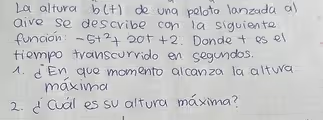 La altura h(t) de una pelota lanzada al
aire se describe con la siguiente
función: -5t²+ 20t +2. Donde t es el
tiempo transcurrido en segundos.
1. ¿En que momento alcanza la altura
máxima
2. ¿Cuál es su altura máxima?